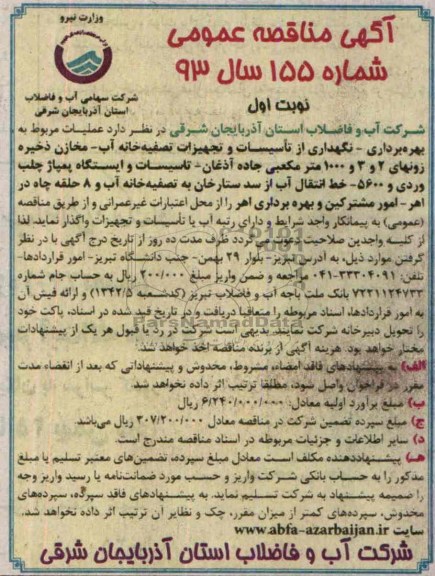 وزارت نیرو
شرکت سهامی آب و فاضلاب
استان آذربایجان شرقی
آگهی مناقصه عمومی
شماره ۱۵۵ سال ۹۳
نوبت اول
شرکت آب و فاضلاب استان آذربایجان شرقی در نظر دارد عملیات مربوط به
بهره‌برداری - نگهداری از تأسیسات و تجهیزات تصفیه‌خانه آب- مخازن ذخیره
زونهای ۲ و ۳ و ۱۰۰۰ متر مکعبی جاده آذغان- تاسیسات و ایستگاه پمپاژ چلب
وردی و ۵۶۰۰- خط انتقال آب از سد ستارخان به تصفیه‌خانه آب و ۸ حلقه چاه در
اهر- امور مشترکین و بهره برداری اهر را از محل اعتبارات غیرعمرانی و از طریق مناقصه
(عمومی) به پیمانکار واجد شرایط و دارای رتبه آب یا تأسیسات و تجهیزات واگذار نماید. لذا
از کلیه واجدین صلاحیت دعوت می‌گردد ظرف مدت ده روز از تاریخ درج آگهی با در نظر
گرفتن موارد ذیل، به آدرس تبریز- بلوار ۲۹ بهمن- جنب دانشگاه تبریز- امور قراردادها-
تلفن: ۳۳۳۰۴۰۹۱-۰۴۱ مراجعه و ضمن واریز مبلغ ۲۰۰/۰۰۰ ریال به حساب جام شماره
۷۲۲۱۱۲۴۷۳۳ بانک ملت باجه آب و فاضلاب تبریز (کدشعبه ۱۳۴۲/۵) و ارائه فیش آن
به امور قراردادها، اسناد مربوطه را متعاقبا دریافت و در تاریخ قید شده در اسناد، پاکت خود
را تحویل دبیرخانه شرکت نمایند. بدیهی است شرکت در رد یا قبول هر یک از پیشنهادات
مختار خواهد بود. هزینه آگهی از برنده مناقصه اخذ خواهد شد.
الف) به پیشنهادهای فاقد امضاء، مشروط، مخدوش و پیشنهاداتی که بعد از انقضاء مدت
مقرر در فراخوان واصل شود، مطلقا ترتیب اثر داده نخواهد شد.
ب) مبلغ برآورد اولیه معادل: ۶/۲۴۰/۰۰۰/۰۰۰ ریال
ج) مبلغ سپرده تضمین شرکت در مناقصه معادل ۳۰۷/۲۰۰/۰۰۰ ریال می‌باشد.
د) سایر اطلاعات و جزئیات مربوطه در اسناد مناقصه مندرج است.
هـ) پیشنهاددهنده مکلف است معادل مبلغ سپرده، تضمین‌های معتبر تسلیم یا مبلغ
مذکور را به حساب بانکی شرکت واریز و حسب مورد ضمانت‌نامه یا رسید واریز وجه
را ضمیمه پیشنهاد به شرکت تسلیم نماید. به پیشنهادهای فاقد سپرده، سپرده‌های
مخدوش، سپرده‌های کمتر از میزان مقرر، چک و نظایر آن ترتیب اثر داده نخواهد شد.
سایت www.abfa-azarbaijan.ir
شرکت آب و فاضلاب استان آذربایجان شرقی